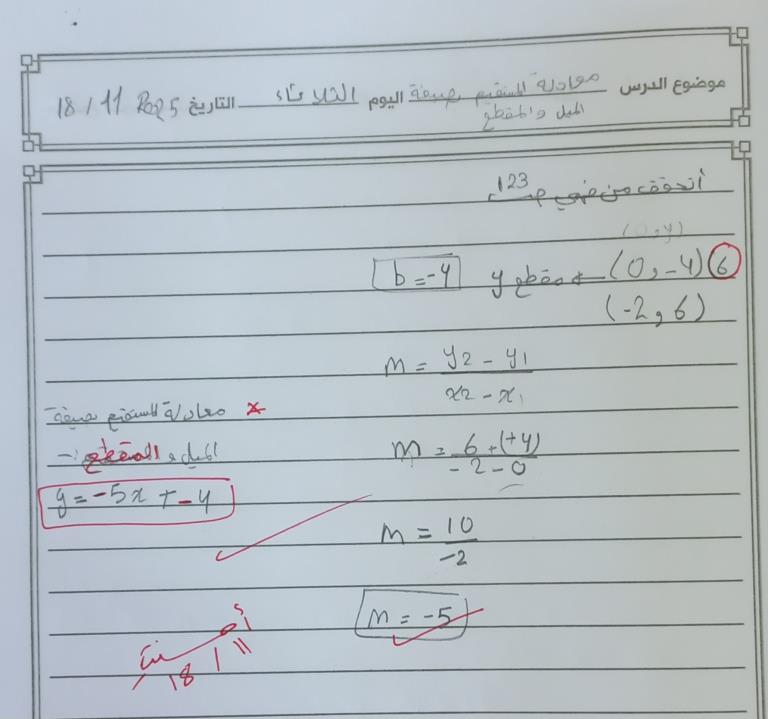 موضوع الدرس معادلة المستقيم بصيغة اليوم الثلاثاء التاريخ 18 / 11 2025
الميل والمقطع
أتحقق من فهمي ص 123
(0,y)
6 (0, -4) ← مقطع y b = -4
(-2, 6)
m = y2 - y1 / x2 - x1
× معادلة المستقيم بصيغة
m = 6 + (+4) / -2 - 0
الميل والمقطع :-
y = -5x + -4
m = 10 / -2
m = -5
أحسنت
18 / 11